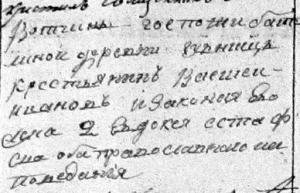 Вотчины госпожи бат
миной деревни
крестьянинъ Василей
ивановъ и законная его
жена 2 Евдокея естаф
ева оба православнаго ис
поведания